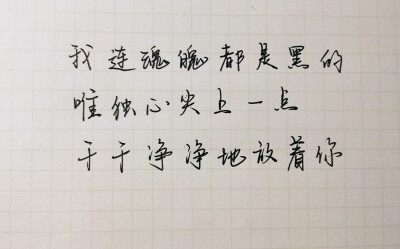 我连魂魄都是黑的
唯独心尖上一点
干干净净地放着你